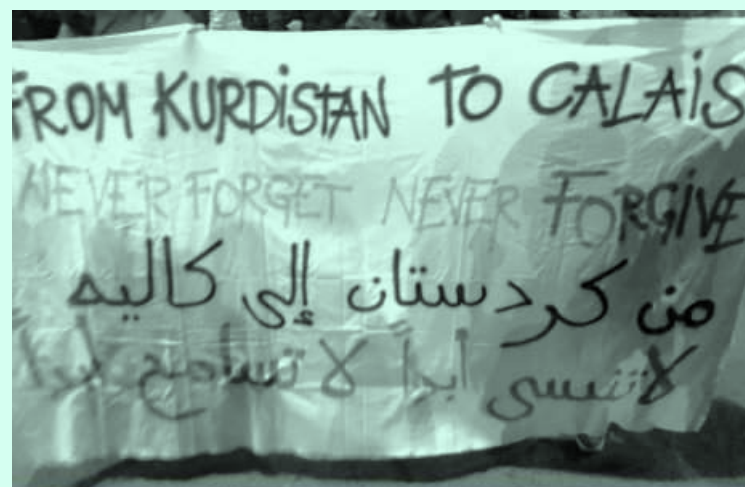 FROM KURDISTAN TO CALAIS
NEVER FORGET NEVER FORGIVE
من كردستان إلى كاليه
لا تنسى أبداً لا تسامح أبداً